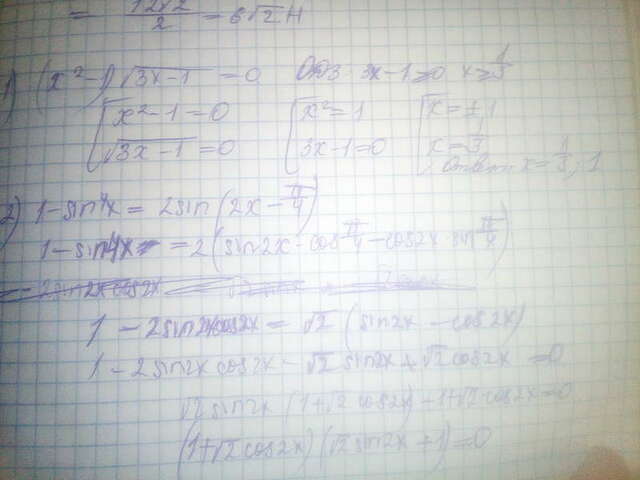 = 12√2 / 2 = 6√2 Н
1) (x² - 1) √3x-1 = 0 ОДЗ 3x - 1 ≥ 0 x ≥ 1/3
[ x² - 1 = 0 [ x² = 1 [ x = ± 1
√3x-1 = 0 3x - 1 = 0 x = 1/3
Ответ x = 1/3; 1
2) 1 - sin4x = 2sin (2x - π/4)
1 - sin4x = 2 (sin2x · cos π/4 - cos2x · sin π/4)
1 - 2sin2xcos2x = √2 (sin2x - cos2x)
1 - 2sin2x cos2x - √2 sin2x + √2 cos2x = 0
√2 sin2x (1 + √2 cos2x) - 1 + √2 cos2x = 0
(1 + √2 cos2x) (√2 sin2x + 1) = 0